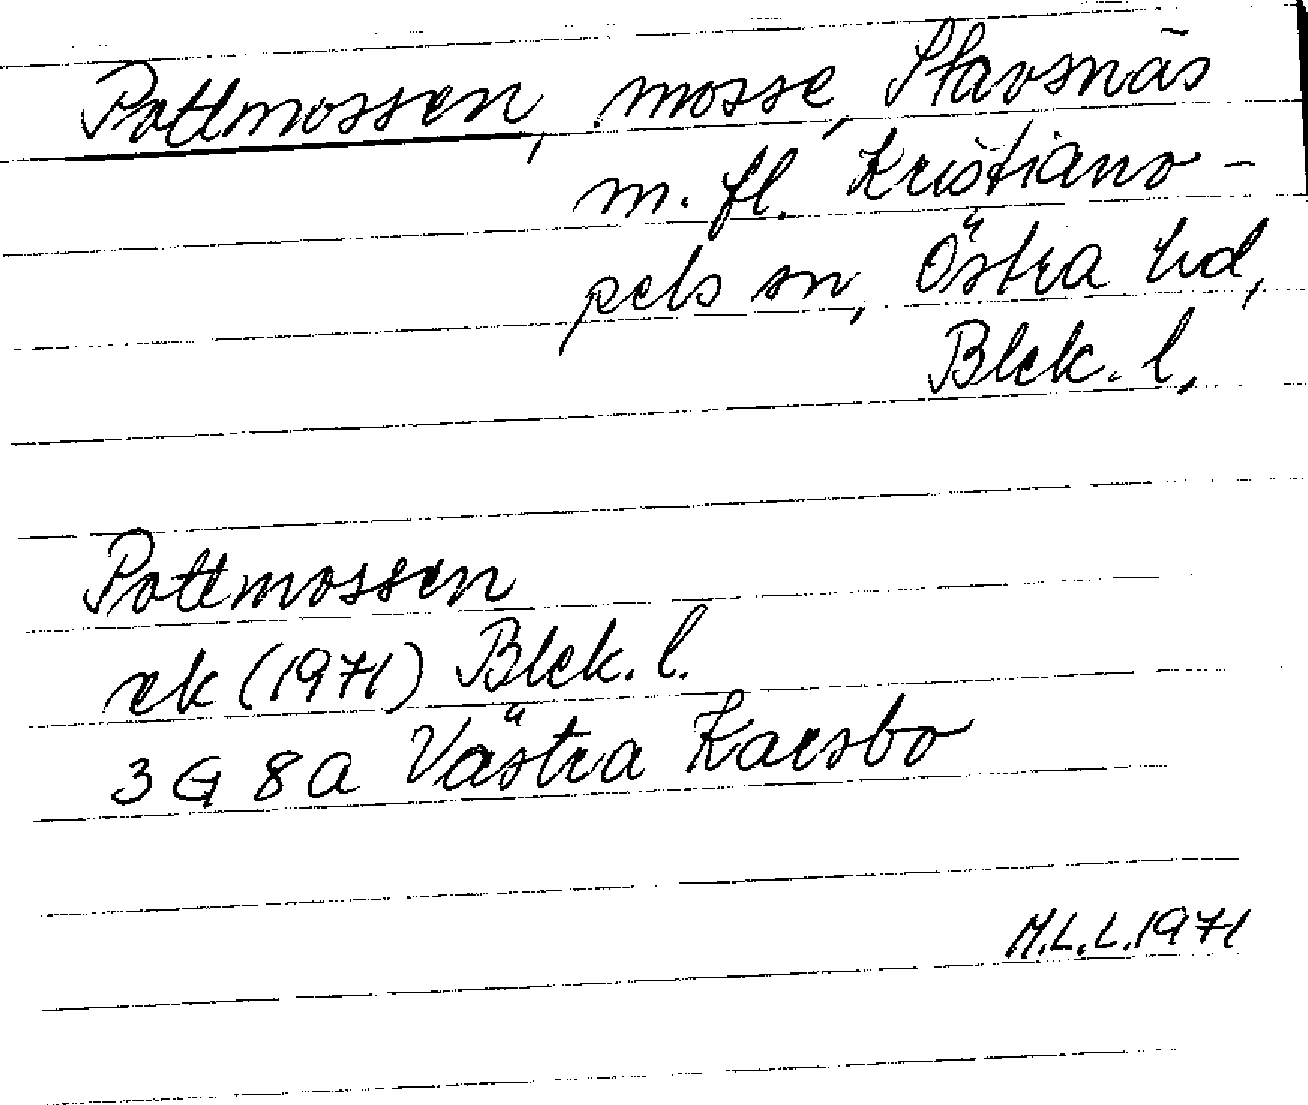 Pottmossen, mosse, Stavsnäs
m. fl. Kristiano-
pels sn, Östra hd,
Blek. l,
Pottmossen
ek (1971) Blek. l.
3G 8a Västra Kärsbo
M.L.L. 1971